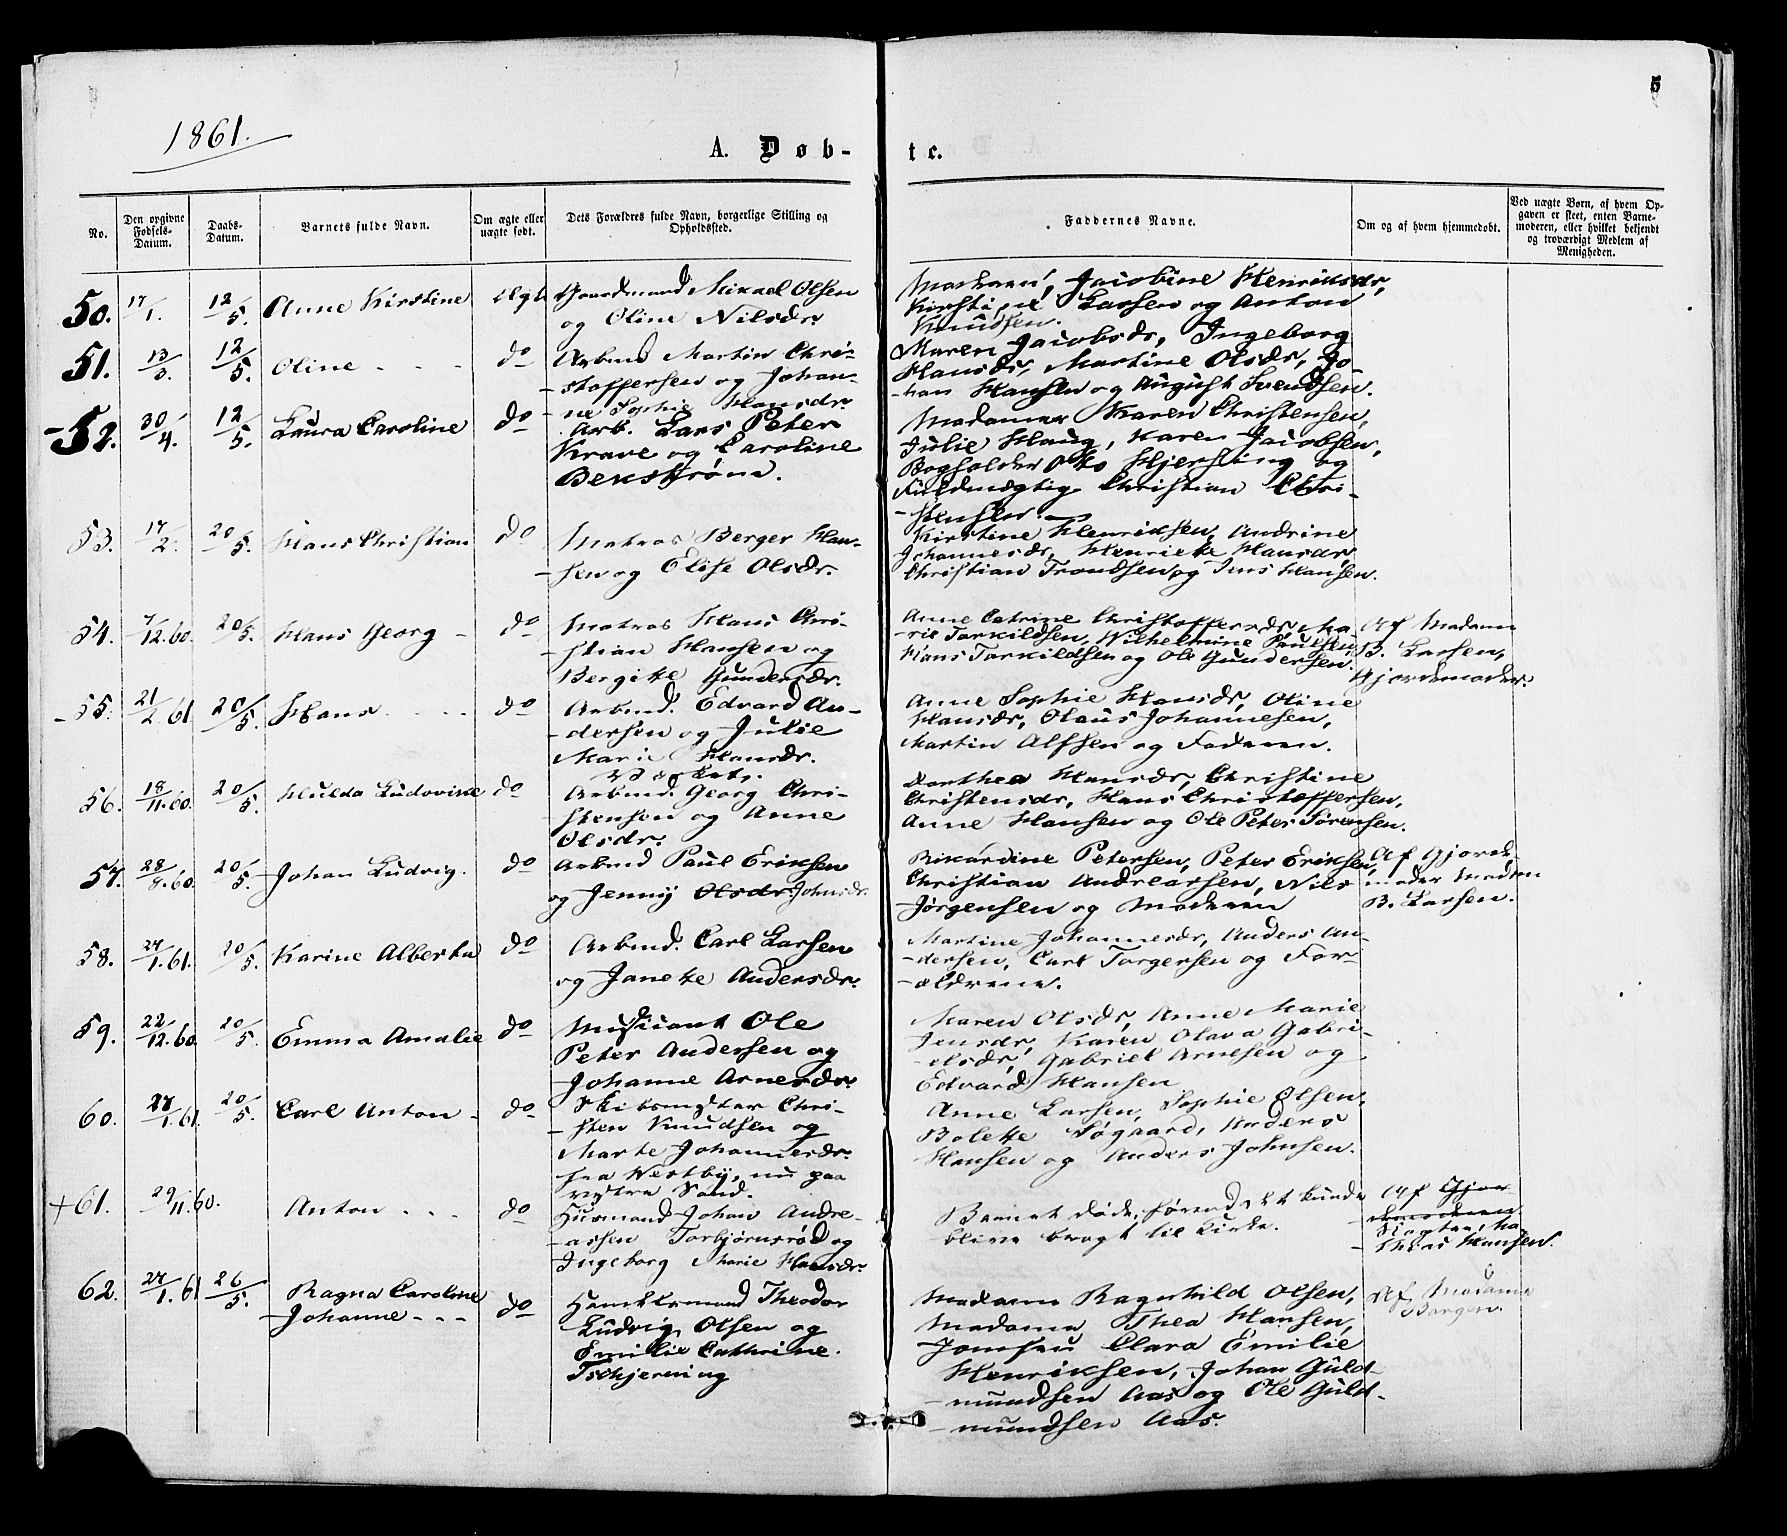 5
1861.
A. Døb-
te.
No.
Den opgivne Fødsels-Datum.
Daabs-Datum.
Barnets fulde Navn.
Om ægte eller uægte født.
Dets Forældres fulde Navn, borgerlige Stilling og Opholdssted.
Faddernes Navne.
Om og af hvem hjemmedøbt.
Ved uægte Børn, af hvem Opgaven er skeet, enten Barnemoderen, eller hvilket bekjendt og troværdigt Medlem af Menigheden.
50. 17/1. 12/5. Anne Kirstine Ægte Gaardmand Mikael Olsen
og Oline Nilsdr.
Jacobine Henriksdr,
Kirstine Larsen og Anton
Knudsen.
51. 13/3. 12/5. Oline do Arbmd Martin Chri-
-stoffersen og Johan-
-ne Sophie Hansdr.
Maren Jacobsdr, Ingeborg
Hansdr, Martine Olsdr, Jo-
-han Hansen og August Svendsen.
-52. 30/4. 12/5. Laura Caroline do Arb. Lars Peter
Krave og Caroline
Bekstrøm.
Madamer Karen Christensen,
Julie Haug, Karen Jacobsen,
Bogholder Otto Hjersing og
Fuldmægtig Christian Chri-
-stensen.
53. 17/2. 20/5. Hans Christian do Matros Berger Han-
-sen og Elise Olsdr.
Kirstine Henriksen, Andrine
Johannesdr, Henriette Hansdr,
Christian Trondsen og Jens Hansen.
54. 7/12.60. 20/5. Hans Georg do Matros Hans Chri-
-stian Hansen og
Bergitte Gundersdr.
Anne Catrine Christoffersdr, Ma-
-rie Tarkildsen, Wilhelmine Paulsen,
Hans Tarkildsen og Ole Gundersen.
Af Madam
B. Larsen,
Gjordemoder.
-55. 21/2.61. 20/5. Hans do Arbmd. Edvard An-
-dersen og Julie
Marie Hansdr.
Anne Sophie Hansdr, Oline
Hansdr, Olaus Johannesen,
Martin Alfsen og Faderen.
56. 18/11.60. 20/5. Hulda Ludovine do
Arbmd. Georg Chri-
-stensen og Anne
Olsdr.
Dorthea Hansdr, Christine
Christensdr, Hans Christoffersen,
Anne Hansen og Ole Peter Sørensen.
57. 28/8.60. 20/5. Johan Ludvig. do Arbmd Paul Eriksen
og Jenny Olsdr. Johnsdr.
Rikardine Petersen, Peter Eriksen,
Christian Andreassen, Nils
Jørgensen og Moderen
Af Gjorde-
moder Madam
B. Larsen.
58. 27/1.61. 20/5. Karine Alberta do Arbmd. Carl Larsen
og Janette Andersdr.
Martine Johannesdr, Anders An-
-dersen, Carl Torgersen og For-
-ældrene.
59. 22/12.60. 20/5. Emma Amalie do Musicant Ole
Peter Andersen og
Johanne Arnesdr.
Maren Olsdr, Anne Marie
Jensdr, Karen Olava Gabri-
-elsdr, Gabriel Arnesen og
Edvard Hansen
60. 27/1.61. 20/5. Carl Anton do Skibsmester Chri-
-sten Knudsen og
Marte Johannesdr.
fra Westby, nu paa
vestre Sand.
Anne Larsen, Sophie Olsen,
Bolette Søgaard, Anders
Hansen og Anders Johnsen.
+61. 29/11.60. Anton do Husmand Johan Andre-
-assen Torbjørnsrød og
Ingeborg Marie Hansdr.
Barnet døde, førend det kunde
blive bragt til Kirke.
Af Gjor
-demoderen
Mathias Hansen.
62. 27/1.61 26/5. Ragna Caroline
Johanne do Handelsmand Theodor
Ludvig Olsen og
Emilie Cathrine
Tschjerning
Madame Ragnhild Olsen,
Madame Thea Hansen,
Jomfru Clara Emilie
Henriksen, Johan Guld-
-mundsen Aas og Ole Guld-
-mundsen Aas.
Af Madame
Borgen.